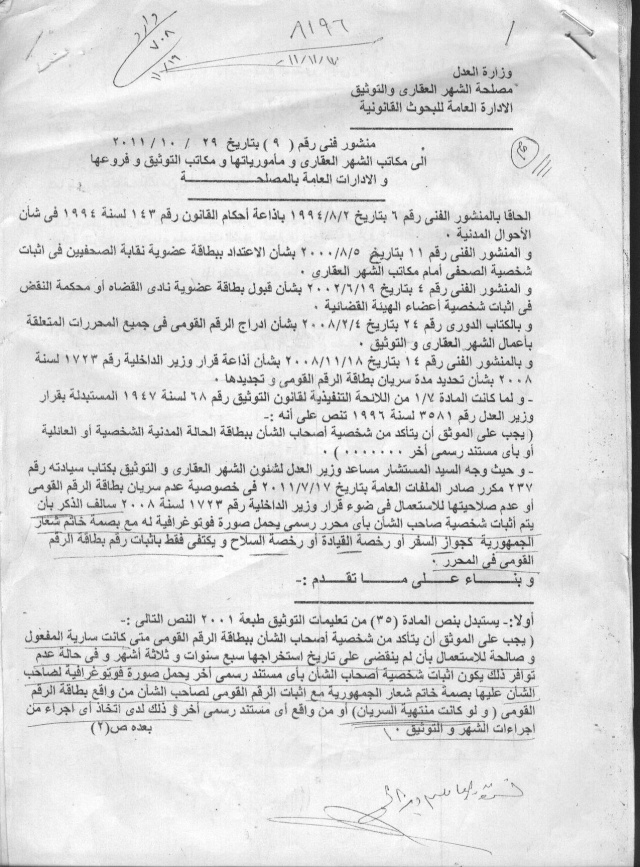 ٨١٩٦
وارد
٧٠٨
١١/١٦
١١/١١/١٧
وزارة العدل
مصلحة الشهر العقارى والتوثيق
الادارة العامة للبحوث القانونية
منشور فنى رقم ( ٩ ) بتاريخ ٢٩ / ١٠ / ٢٠١١
الى مكاتب الشهر العقارى و مأمورياتها و مكاتب التوثيق و فروعها
و الادارات العامة بالمصلحـــــــــــة
الحاقا بالمنشور الفنى رقم ٦ بتاريخ ١٩٩٤/٨/٢ باذاعة أحكام القانون رقم ١٤٣ لسنة ١٩٩٤ فى شأن
الأحوال المدنية ٠
و المنشور الفنى رقم ١١ بتاريخ ٢٠٠٠/٨/٥ بشأن الاعتداد ببطاقة عضوية نقابة الصحفيين فى اثبات
شخصية الصحفى أمام مكاتب الشهر العقارى ٠
و المنشور الفنى رقم ٤ بتاريخ ٢٠٠٢/٦/١٩ بشأن قبول بطاقة عضوية نادى القضاه أو محكمة النقض
فى اثبات شخصية أعضاء الهيئة القضائية ٠
و بالكتاب الدورى رقم ٢٤ بتاريخ ٢٠٠٨/٢/٤ بشأن ادراج الرقم القومى فى جميع المحررات المتعلقة
بأعمال الشهر العقارى و التوثيق ٠
و بالمنشور الفنى رقم ١٤ بتاريخ ٢٠٠٨/١١/١٨ بشأن أذاعة قرار وزير الداخلية رقم ١٧٢٣ لسنة
٢٠٠٨ بشأن تحديد مدة سريان بطاقة الرقم القومى و تجديدها ٠
- و لما كانت المادة ١/٧ من اللائحة التنفيذية لقانون التوثيق رقم ٦٨ لسنة ١٩٤٧ المستبدلة بقرار
وزير العدل رقم ٣٥٨١ لسنة ١٩٩٦ تنص على أنه :-
( يجب على الموثق أن يتأكد من شخصية أصحاب الشأن ببطاقة الحالة المدنية الشخصية أو العائلية
أو بأى مستند رسمى أخر ٠٠٠٠٠٠٠ ) ٠
- و حيث وجه السيد المستشار مساعد وزير العدل لشئون الشهر العقارى و التوثيق بكتاب سيادته رقم
٢٣٧ مكرر صادر الملفات العامة بتاريخ ٢٠١١/٧/١٧ فى خصوصية عدم سريان بطاقة الرقم القومى
أو عدم صلاحيتها للاستعمال فى ضوء قرار وزير الداخلية رقم ١٧٢٣ لسنة ٢٠٠٨ سالف الذكر بأن
يتم أثبات شخصية صاحب الشأن بأى محرر رسمي يحمل صورة فوتوغرافية له مع بصمة خاتم شعار
الجمهورية كجواز السفر أو رخصة القيادة أو رخصة السلاح و يكتفى فقط باثبات رقم بطاقة الرقم
القومى فى المحرر ٠
و بنـــاء علـــى مـــا تقـــدم :-
أولا:- يستبدل بنص المادة (٣٥) من تعليمات التوثيق طبعة ٢٠٠١ النص التالى :-
( يجب على الموثق أن يتأكد من شخصية أصحاب الشأن ببطاقة الرقم القومى متى كانت سارية المفعول
و صالحة للاستعمال بأن لم ينقضى على تاريخ استخراجها سبع سنوات و ثلاثة أشهر و فى حالة عدم
توافر ذلك يكون اثبات شخصية أصحاب الشأن بأى مستند رسمى أخر يحمل صورة فوتوغرافية لصاحب
الشأن عليها بصمة خاتم شعار الجمهورية مع اثبات الرقم القومى لصاحب الشأن من واقع بطاقة الرقم
القومى ( و لو كانت منتهية السريان) أو من واقع أى مستند رسمى أخر و ذلك لدى اتخاذ أى اجراء من
اجراءات الشهر و التوثيق ٠
بعده ص(٢)